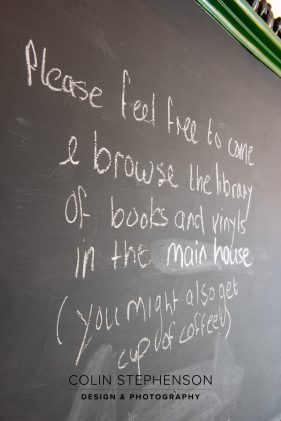 Please feel free to come
& browse the library
of books and vinyls
in the main house
(you might also get
cup of coffee!)
COLIN STEPHENSON
DESIGN & PHOTOGRAPHY